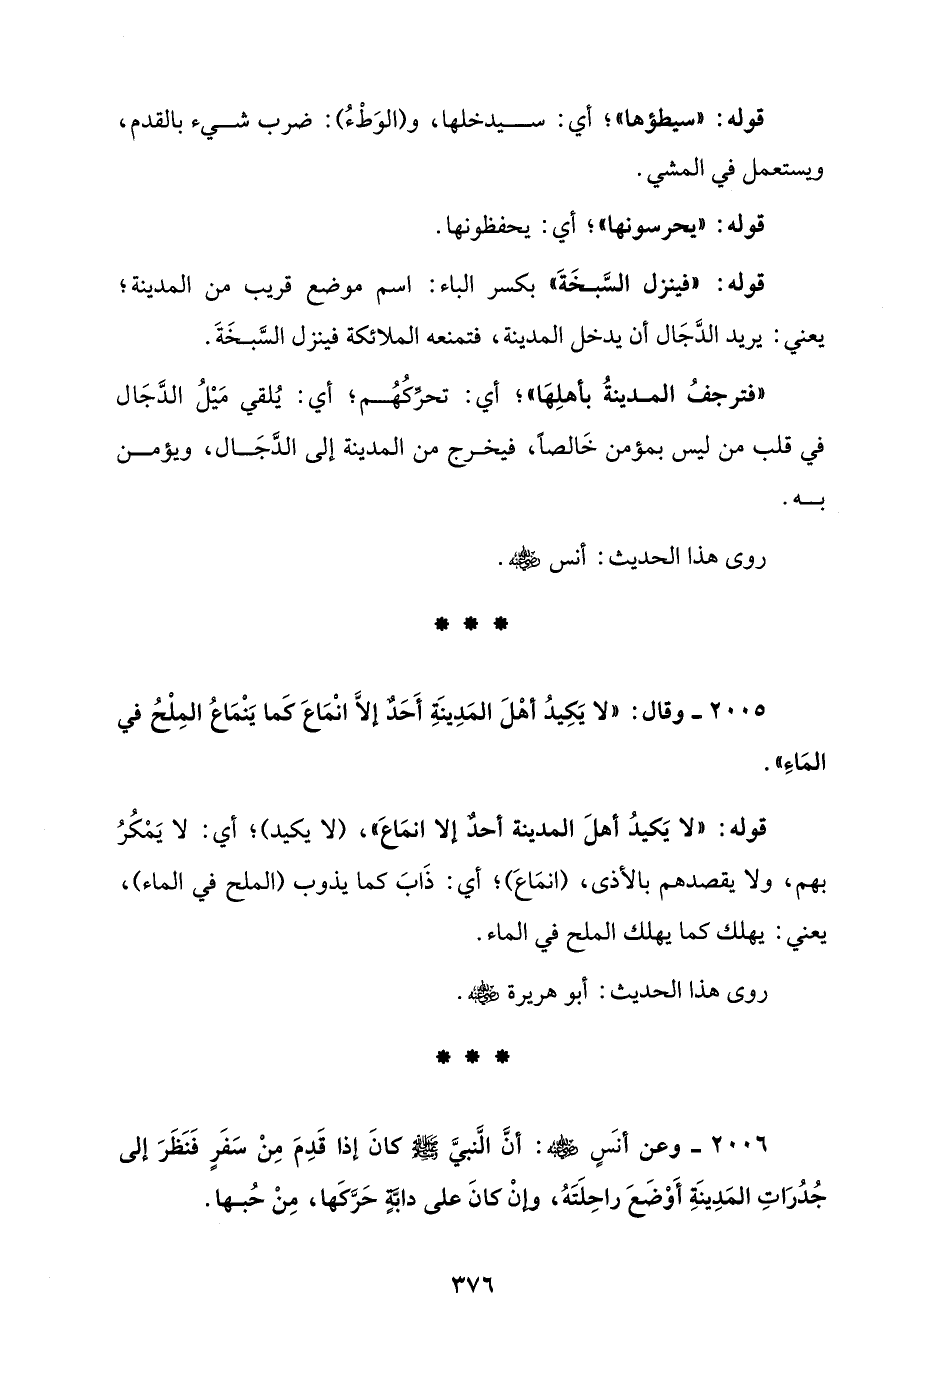 قوله: «سيطؤها»؛ أي: سيدخلها، و(الوَطْءُ): ضرب شيء بالقدم،
ويستعمل في المشي.
قوله: «يحرسونها»؛ أي: يحفظونها.
قوله: «فينزل السَّبِخَةَ» بكسر الباء: اسم موضع قريب من المدينة؛
يعني: يريد الدَّجَال أن يدخل المدينة، فتمنعه الملائكة فينزل السَّبِخَةَ.
«فترجفُ المدينةُ بأهلِهَا»؛ أي: تحرِّكُهُم؛ أي: يُلقي مَيْلُ الدَّجَال
في قلب من ليس بمؤمن خَالصاً، فيخرج من المدينة إلى الدَّجَال، ويؤمن
به.
روى هذا الحديث: أنس رضي الله عنه.
* * *
٢٠٠٥ - وقال: «لا يَكِيدُ أهْلَ المَدِينَةِ أَحَدٌ إلاَّ انْمَاعَ كَما يَنْمَاعُ المِلْحُ في
المَاءِ».
قوله: «لا يَكيدُ أهلَ المدينة أحدٌ إلا انمَاعَ»، (لا يكيد)؛ أي: لا يَمْكُرُ
بهم، ولا يقصدهم بالأذى، (انمَاعَ)؛ أي: ذَابَ كما يذوب (الملح في الماء)،
يعني: يهلك كما يهلك الملح في الماء.
روى هذا الحديث: أبو هريرة رضي الله عنه.
* * *
٢٠٠٦ - وعن أنَسٍ رضي الله عنه: أنَّ النَّبيَّ ﷺ كانَ إذا قَدِمَ مِنْ سَفَرٍ فَنَظَرَ إلى
جُدُرَاتِ المَدِينَةِ أَوْضَعَ راحِلَتَهُ، وإنْ كانَ على دابَّةٍ حَرَّكَها، مِنْ حُبِها.
٣٧٦